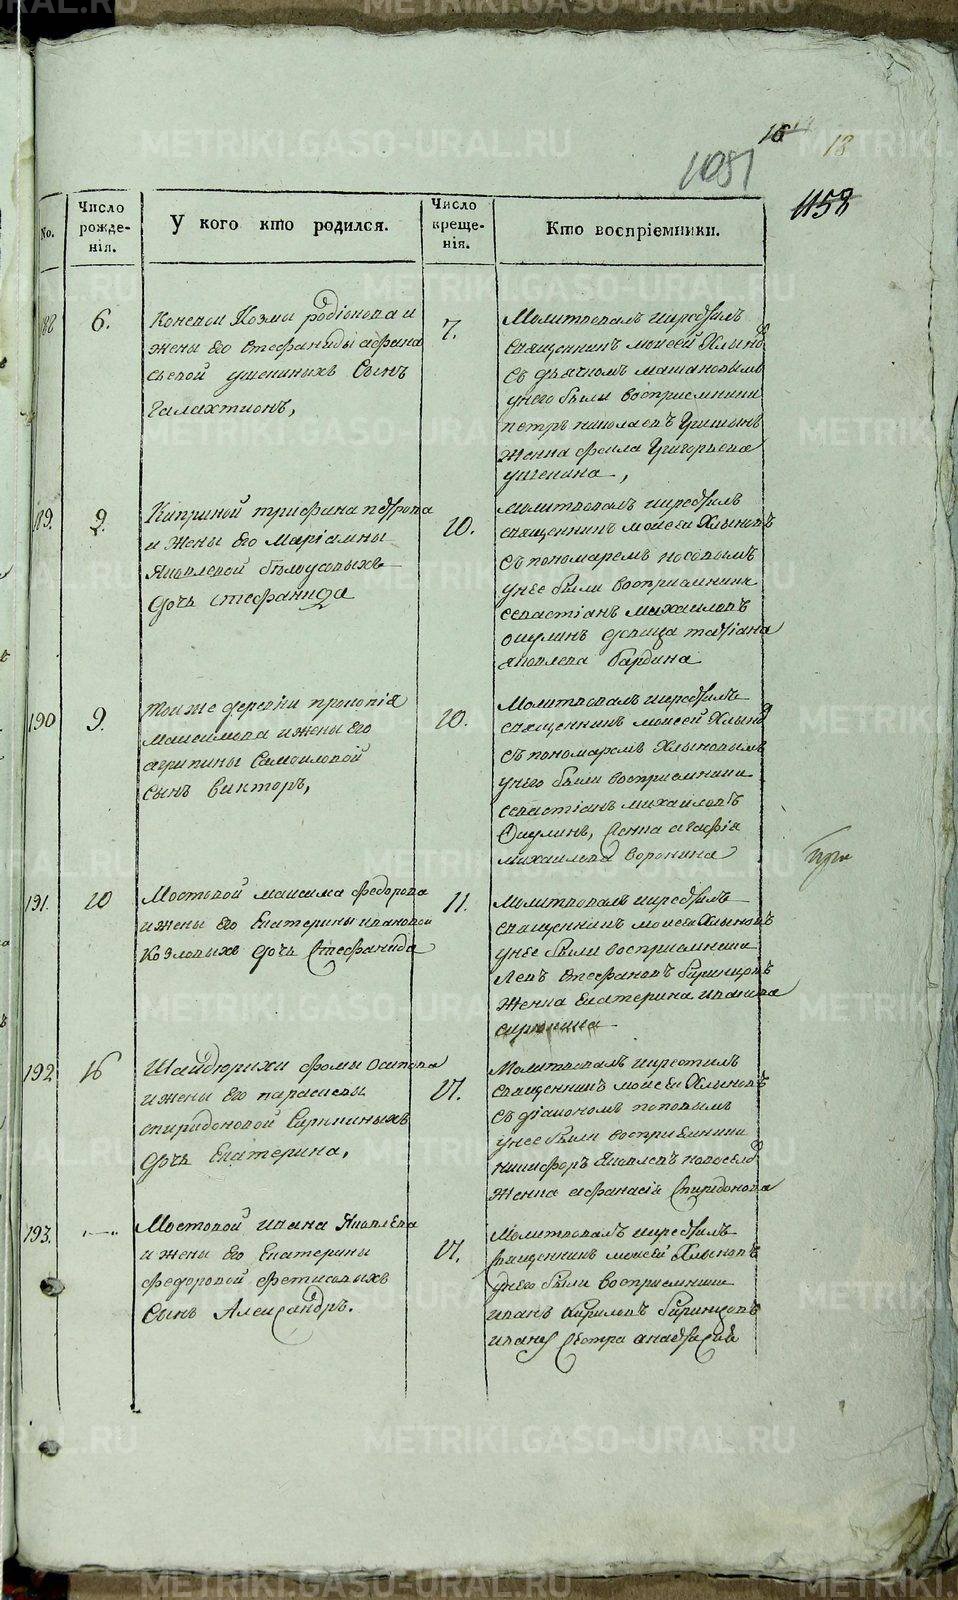 16
18
1051
1158
No.
Число рожде-нія.
У кого кто родился.
Число креще-нія.
Кто воспріемники.
188
6.
Коневои Козмы родіонова и
жены его Стефаниды афана
сьевой ушениныхъ Сынъ
галахтионъ,
7.
Молитвовалъ икрестилъ
священникъ моисей Хлыновъ
Съ дьячкомъ
унего были восприемники
петръ николаевъ Гришинъ
женка фекла Григорьева
ушенина,
189.
9.
Киприной трифана петрова
и жены его Маріамны
Яковлевой бѣлоусовыхъ
дочь стефанида
10.
молитвовалъ икрестилъ
священникъ моисеи Хлыновъ
съ пономаремъ носовымъ
унее были восприемники
севастіанъ михаиловъ
ошулинъ девица татіана
яковлева бардина
190
9.
тоиже деревни прокопія
максимова ижены его
агрипины Самоиловой
сынъ викторъ,
10.
молитвовалъ икрестилъ
священникъ моисей Хлыновъ
съ пономаремъ Хлыновымъ
унего были восприемники
севастіанъ михаиловъ
Ошулинъ, женка агафія
михаилова воронина
при
191.
10
Мостовой максима федорова
ижены его Екатерины ивановой
Козловыхъ дочь Стефанида
11.
молитвовалъ икрестилъ
священникъ моисеи Хлыновъ
унее были восприемники
Левъ Стефановъ бурнцовъ
женка Екатерина иванова
192
16
Шайдюрихи фомы осипова
ижены его параскевы
спиридоновой Сиркиныхъ
дочь Екатерина,
17.
Молитвовалъ икрестилъ
священникъ моисеи Хлыновъ
съ діакономъ поповымъ
унее были восприемники
никифоръ Яковлевъ новосело
женка афанасія Спиридонова
193.
Мостовой ивана Яковлева
и жены его Екатерины
федоровой фетисовыхъ
Сынъ Александръ.
17.
Молитвовалъ икрестилъ
священникъ моисей Хлыновъ
унего были восприемники
иванъ Кириловъ бурнцовъ
сестра анастасія
METRIKI.GASO-URAL.RU